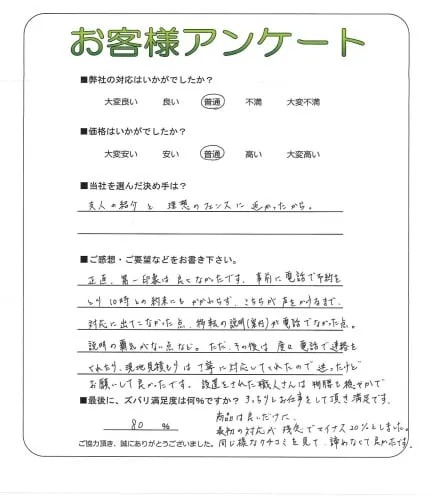 お客様アンケート
■弊社の対応はいかがでしたか？
大変良い 良い 普通 不満 大変不満
■価格はいかがでしたか？
大変安い 安い 普通 高い 大変高い
■当社を選んだ決め手は？
夫人の紹介と理想のフェンスに近かったから。
■ご感想・ご要望などをお書き下さい。
正直、第一印象は良くなかったです。事前に電話で予約を
とり10時との約束にもかかわらず、こちらが声をかけるまで、
対応に出てこなかった点、移転の説明(案内)が電話でなかった点。
説明の覇気がない点など。ただ、その後は度々電話で連絡を
くれたり、現地見積もりは丁寧に対応してくれたので迷ったけど
お願いして良かったです。設置をされた職人さんは物腰も穏やかで
■最後に、ズバリ満足度は何％ですか？ きっちりとお仕事をして頂き満足です。
商品は良いだけに、
80 % 最初の対応が残念でマイナス20%としました。
ご協力頂き、誠にありがとうございました。 同じ様なクチコミを見て、諦めなくて良かったです。